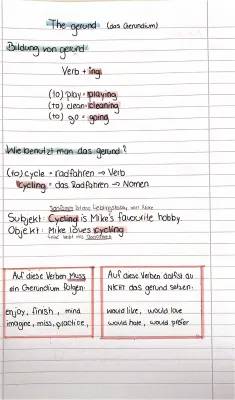 The gerund (das Gerundium)
Bildung von gerund:
Verb + ing
(to) play - playing
(to) clean - cleaning
(to) go - going
Wie benutzt man das gerund?
(to) cycle = radfahren → Verb
Cycling = das Radfahren → Nomen
Subjekt: Cycling is Mike's favourite hobby.
Objekt: Mike loves cycling
Auf diese Verben Muss
ein Gerundium folgen:
enjoy, finish, mind
imagine, miss, practice,
Auf diese Verben darfst du
NICHT das gerund setzen:
would like, would love
would hate, would prefer